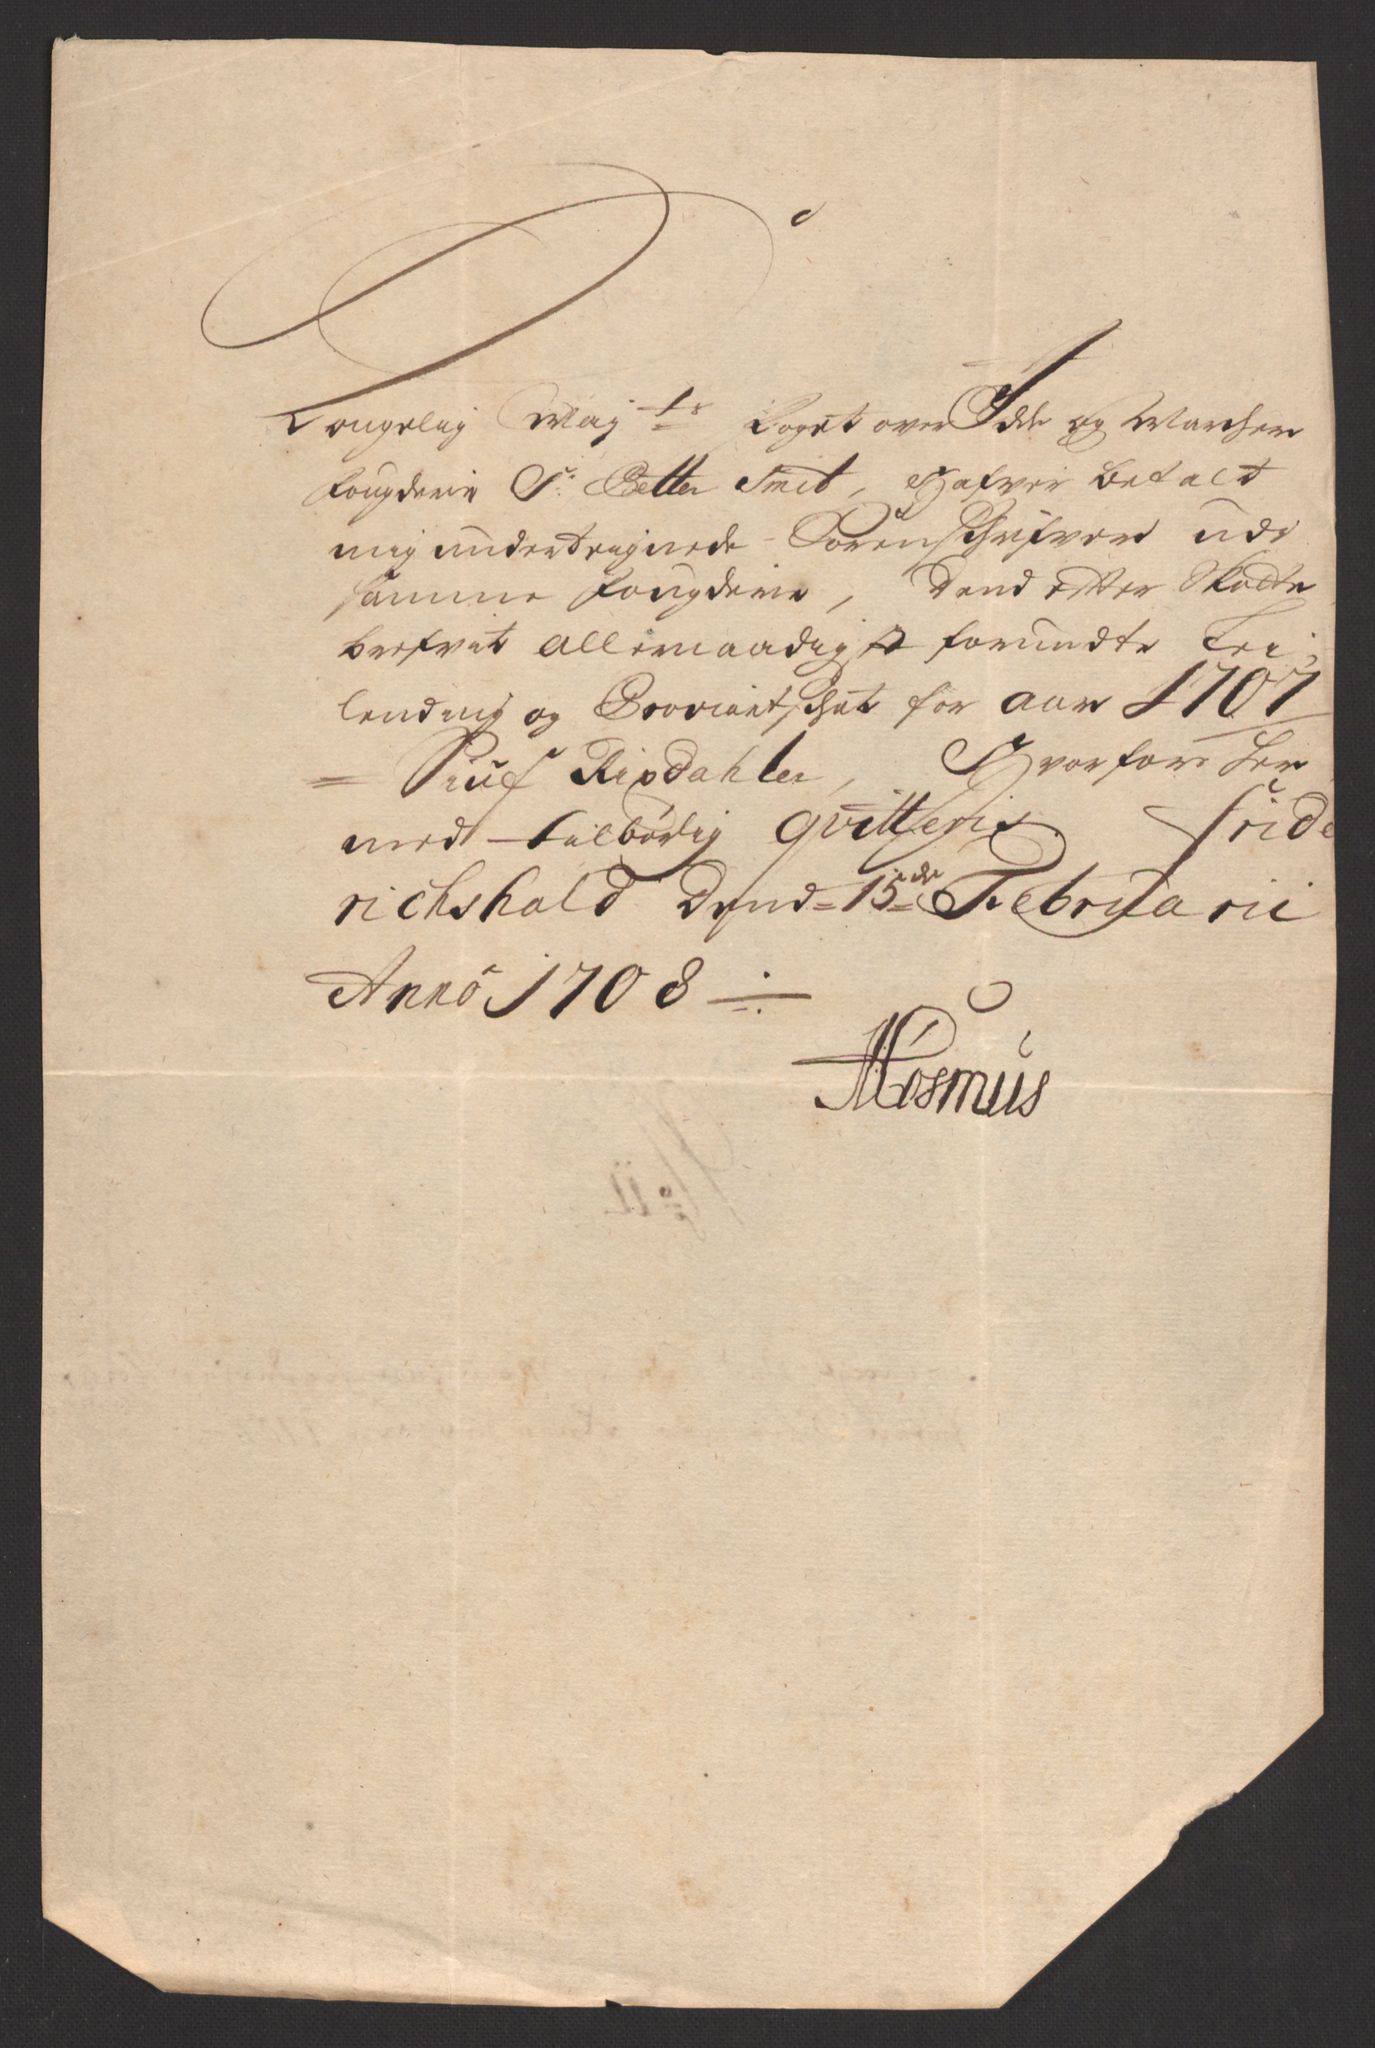 Kongelig Maj:ts Foget over Idde og Marcher
Fougderie Sr. Petter Smit, Hafver betalt
mig undertegnede Sorenschrifver udi
samme Fougderie, dend efter Skatte
brefvet allernaadigst forundte Lei-
lending og Proviantschat for aar 1707
= Siuf Rixdahler, Hvorfore her
med tilbörlig qvitteris. Fride
richshald dend 15de Februarii
Anno 1708
Rosmus